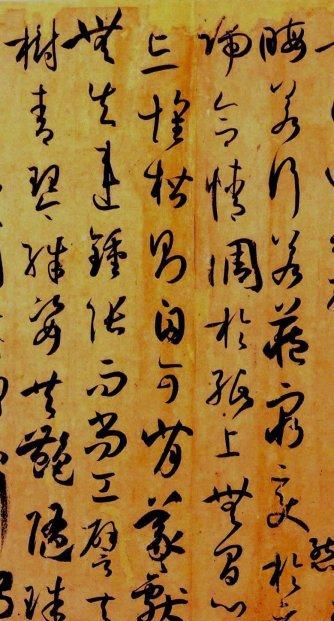 晦若行若藏窮變態於
端合情調於紙上無間心
忘懷楷則自可背羲獻
無失違鍾張而尚工譬夫
樹青琴殊姿共豔隋珠